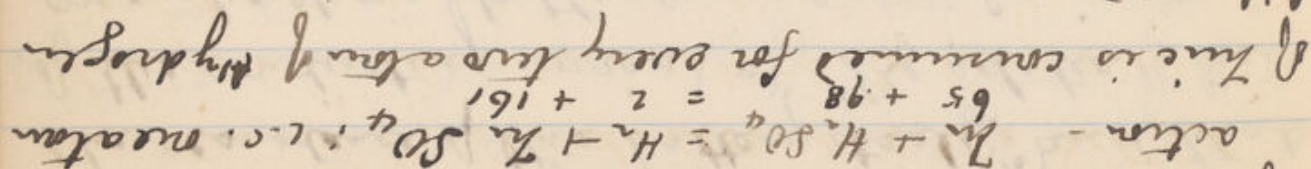 action - Zn + H₂SO₄ = H₂ + Zn SO₄ ; i.e. one atom
65 + 98 = 2 + 161
of Zinc is consumed for every two atom of Hydrogen